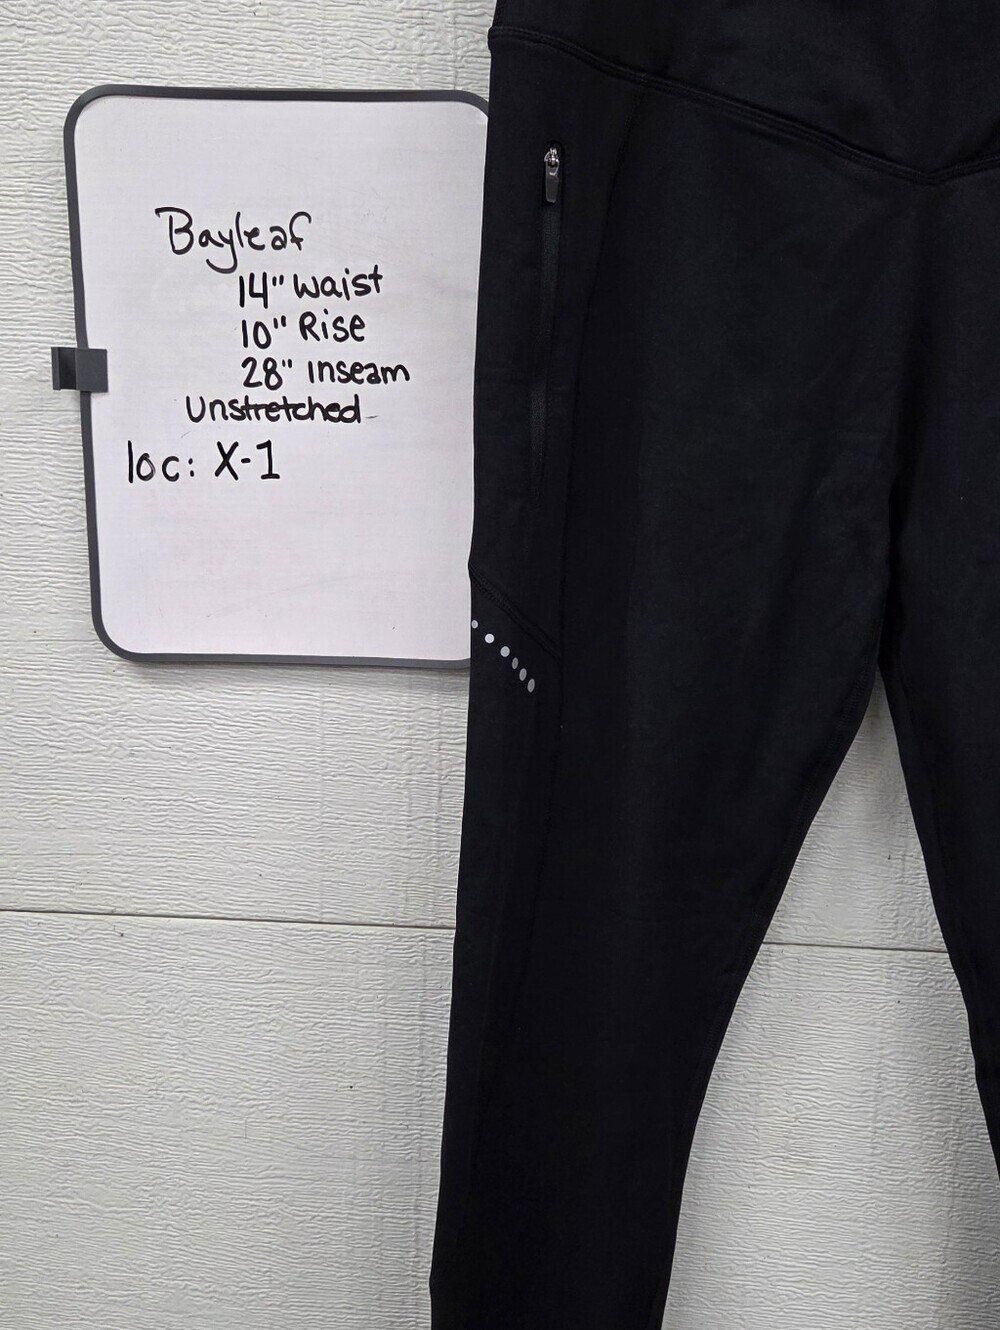 Bayleaf
14" waist
10" Rise
28" inseam
Unstretched
loc: X-1